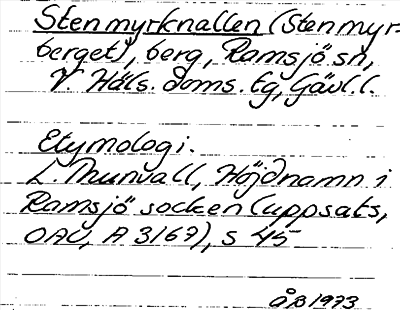 Stenmyrknallen (Stenmyr-
berget), berg, Ramsjö sn,
V. Häls. doms. tg, Gävl.l.
Etymologi.
L. Munvall, Höjdnamn i
Ramsjö socken (uppsats,
OAU, A 3167), s 45
ÅB 1973